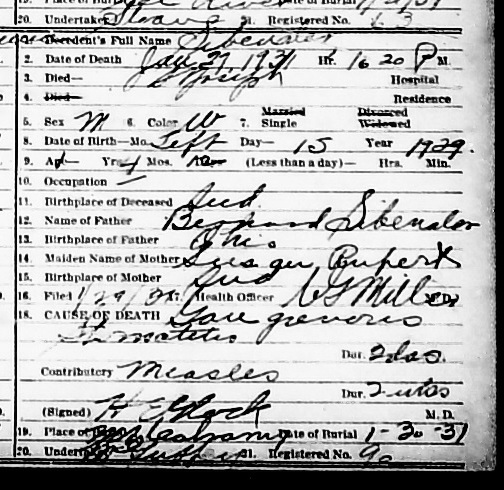 20. Undertaker 21. Registered No. 13
Decedent's Full Name Sibenaler
2. Date of Death Jan 29, 1931 Hr. 6 20 P M.
3. Died— St Joseph Hospital
4. Died— Residence
5. Sex M 6. Color W 7. Married Single Divorced Widowed
8. Date of Birth—Mo. Sept Day— 15 Year 1929.
9. Age Yrs. 4 Mos. (Less than a day)— Hrs. Min.
10. Occupation —
11. Birthplace of Deceased Ind
12. Name of Father Bernard Sibenaler
13. Birthplace of Father Ohio
14. Maiden Name of Mother Rupert
15. Birthplace of Mother Ind
16. Filed 1/29/31 17. Health Officer Miller M.D.
18. CAUSE OF DEATH Gangrenous
Stomatitis
Dur. 2 das.
Contributory Measles
Dur. 2 wks
(Signed) H M. D.
19. Place of Burial Date of Burial 1-30-31
20. Undertaker 21. Registered No. 9